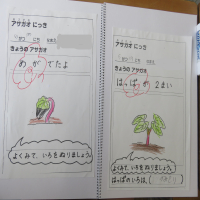 アサガオ にっき
がつ にち なまえ
きょうの アサガオ
めがでたよ
よくみて、いろをぬりましょう。
アサガオ にっき
がつ にち なまえ
きょうの アサガオ
はっぱが 2まい
よくみて、いろをぬりましょう。
はっぱのいろは、( )